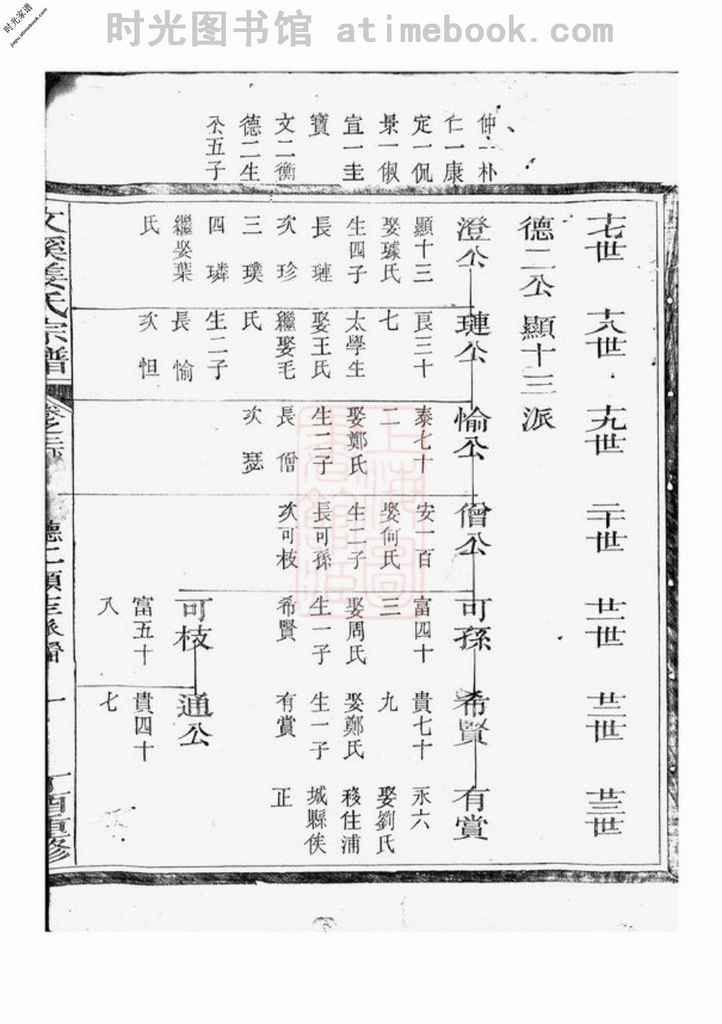 时光家谱
jiapu.atimebook.com
时光图书馆 atimebook.com
伸一朴
仁一康
定一侃
景一俶
宣一圭
寶
文二衡
德二生
仌五子
十七世
十八世
十九世
二十世
廿一世
廿二世
廿三世
德二公 顯十三派
澄公
顯十三
娶璩氏
生四子
長 璉
次 珍
三 璞
四 璘
繼娶葉
氏
璉公
良三十
七
太學生
娶王氏
繼娶毛
氏
生二子
長 愉
次 怛
愉公
泰七十
二
娶鄭氏
生二子
長 僧
次 瑟
僧公
安一百
娶何氏
生二子
長可孫
次可枝
可孫
富四十
三
娶周氏
生一子
希賢
可枝
富五十
八
希賢
貴七十
九
娶鄭氏
生一子
有賞
通公
貴四十
七
有賞
永六
娶劉氏
移住浦
城縣俟
正
文溪姜氏宗譜
卷之
德二顯十三派
一
丁酉重修